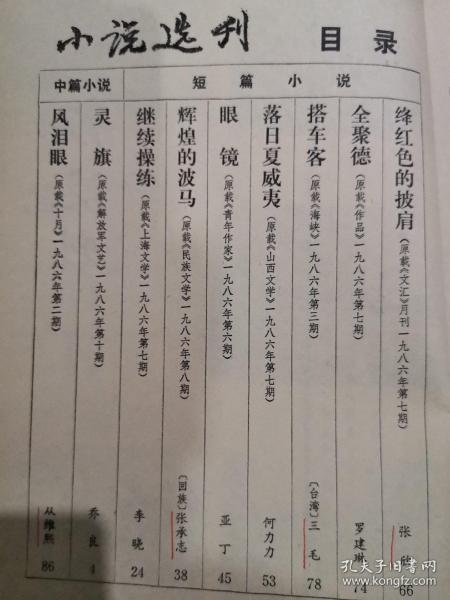 小说选刊 目录
中篇小说 短篇小说
绛红色的披肩（原载《文汇》月刊一九八六年第七期） 张 66
全聚德（原载《作品》一九八六年第七期） 罗建琳 74
搭车客（原载《海峡》一九八六年第三期） 〔台湾〕三毛 78
落日夏威夷（原载《山西文学》一九八六年第七期） 何力力 53
眼镜（原载《青年作家》一九八六年第六期） 亚丁 45
辉煌的波马（原载《民族文学》一九八六年第八期） 〔回族〕张承志 38
继续操练（原载《上海文学》一九八六年第七期） 李晓 24
灵旗（原载《解放军文艺》一九八六年第十期） 乔良 4
风泪眼（原载《十月》一九八六年第二期） 从维熙 86
孔夫子旧书网